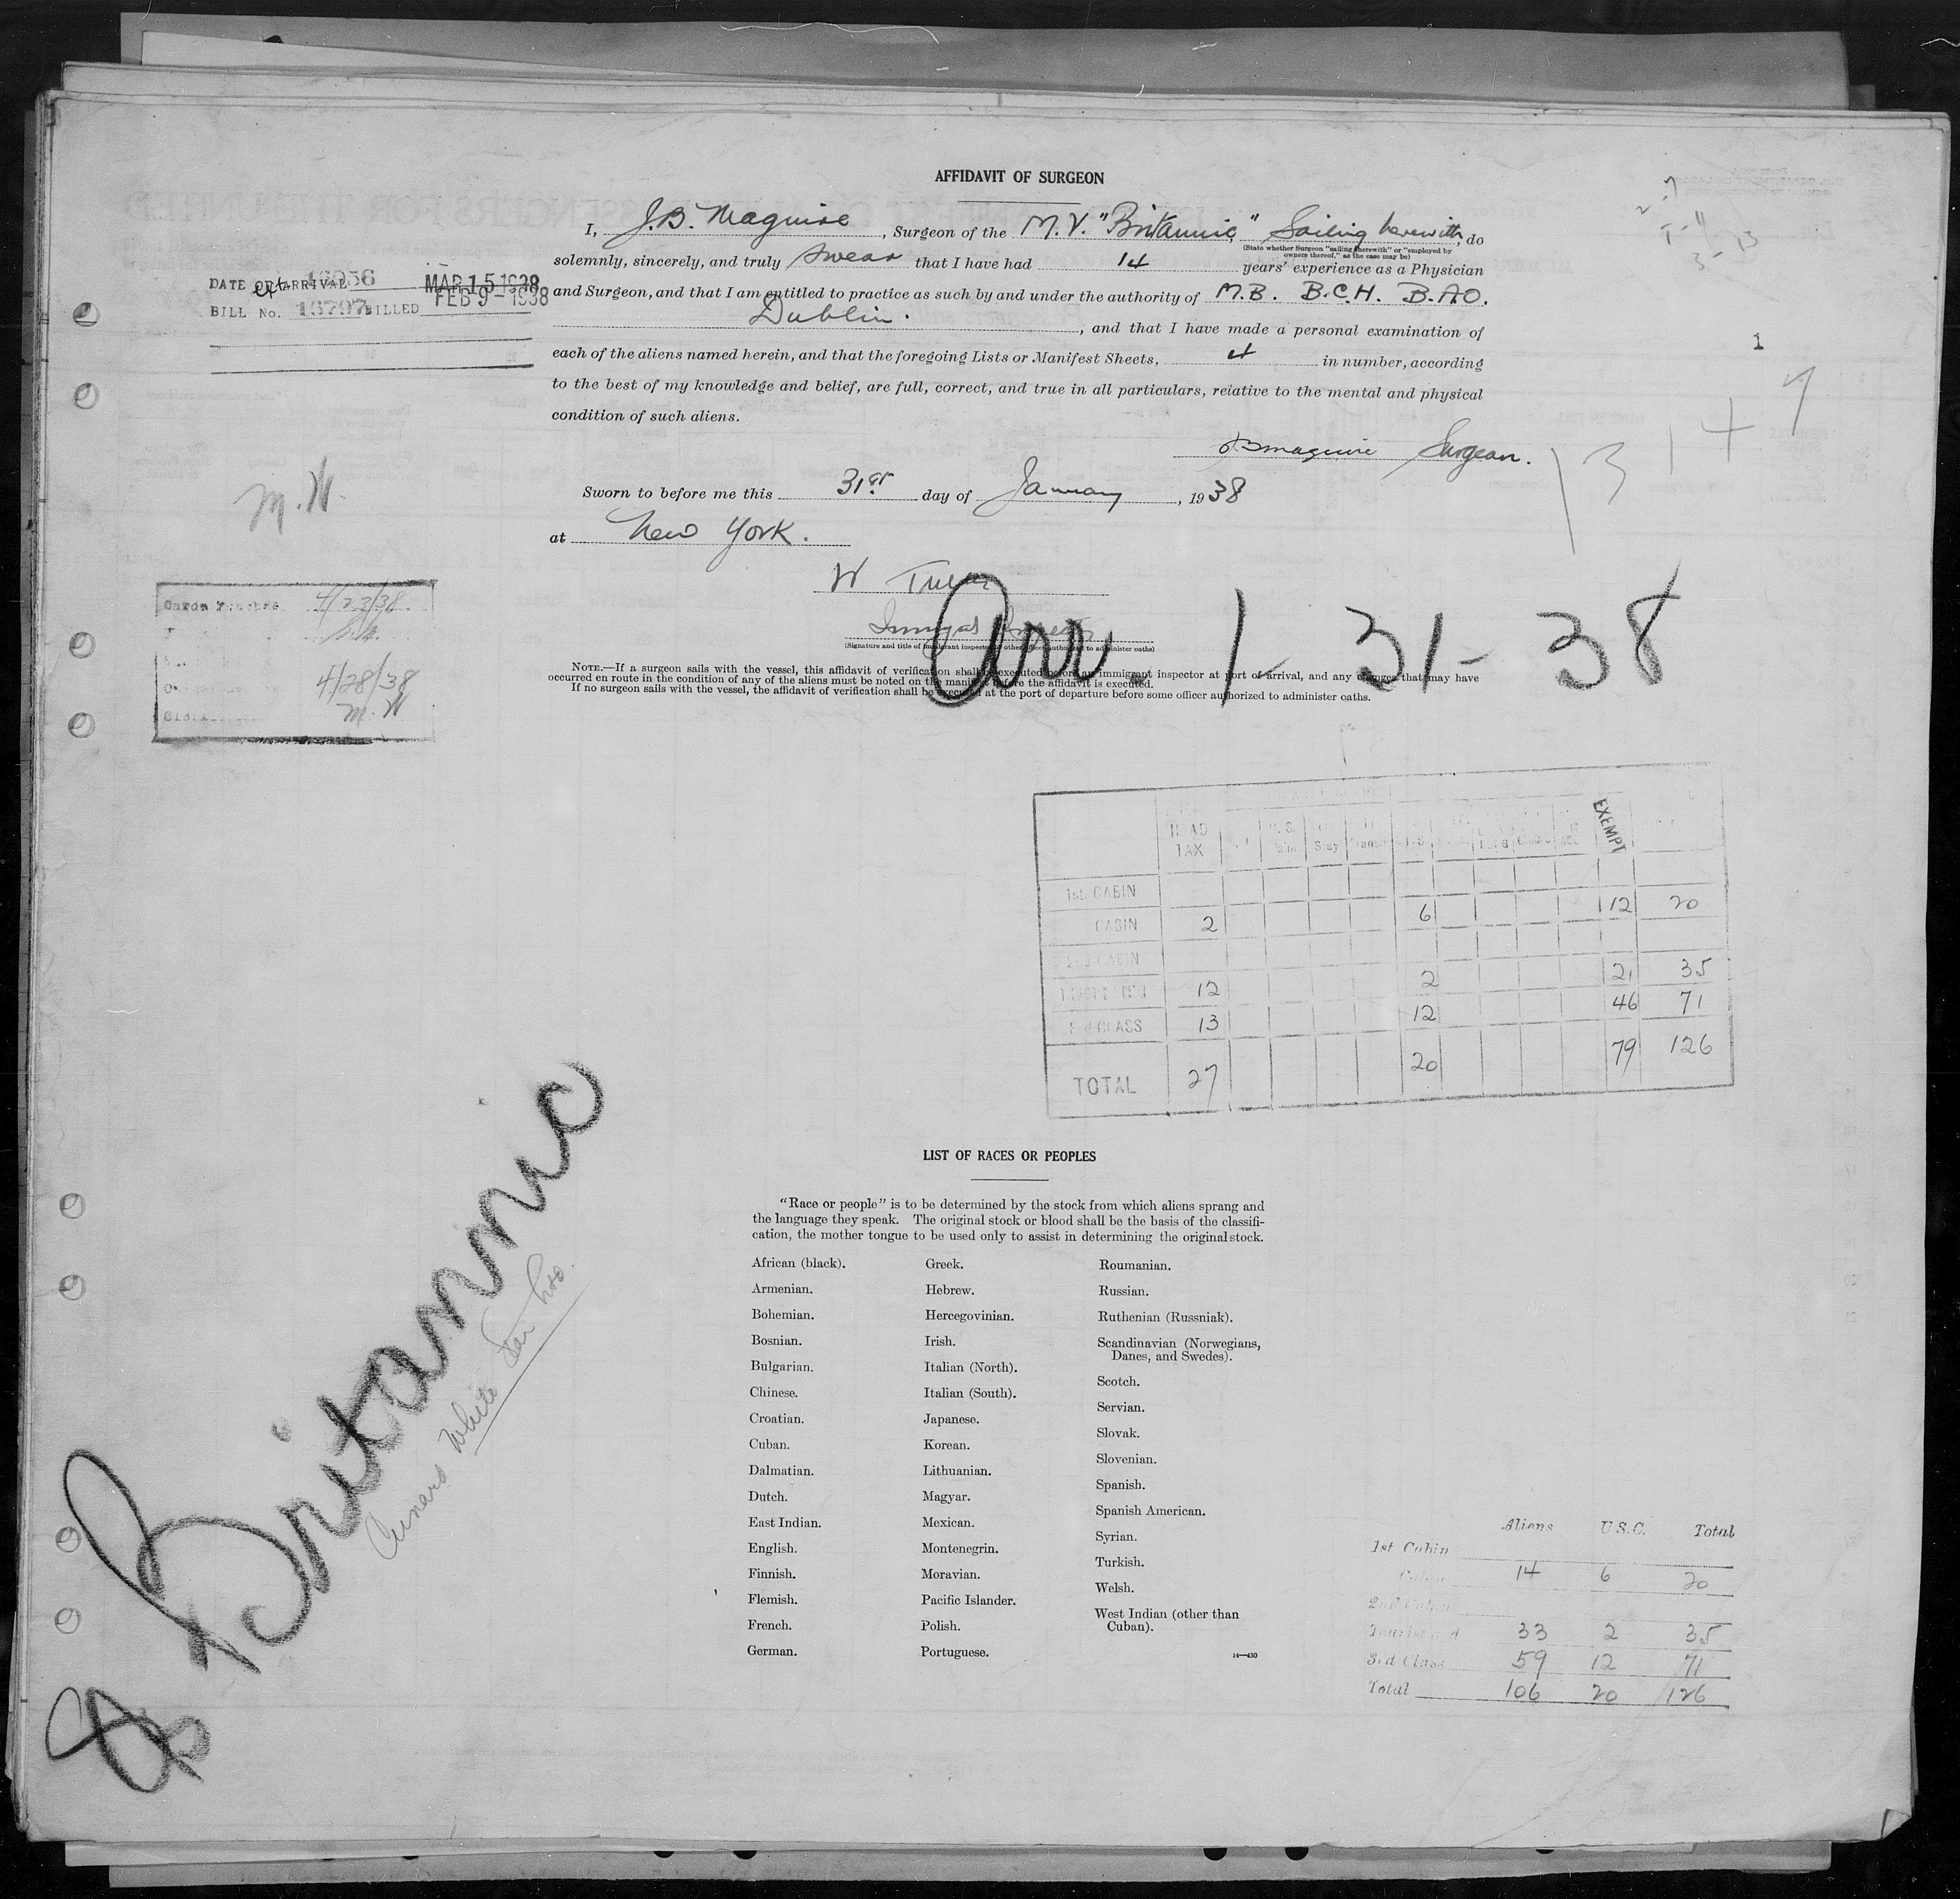 AFFIDAVIT OF SURGEON
I, J.B. Maguire, Surgeon of the M.V. "Britannic" Sailing herewith, do
(State whether Surgeon "sailing therewith" or "employed by
owners thereof," as the case may be)
solemnly, sincerely, and truly swear that I have had 14 years' experience as a Physician
and Surgeon, and that I am entitled to practice as such by and under the authority of M.B. B.C.H. B.A.O.
Dublin. , and that I have made a personal examination of
each of the aliens named herein, and that the foregoing Lists or Manifest Sheets, 4 in number, according
to the best of my knowledge and belief, are full, correct, and true in all particulars, relative to the mental and physical
condition of such aliens.
JBMaguire Surgeon.
Sworn to before me this 31st day of January, 1938
at New York.
DATE OF ARRIVAL MAR 15 1938
BILL No. 16797 BILLED FEB 9 - 1938
1
M.W.
13 1 4 7
4/23/38.
4/28/38
M.W
W
(Signature and title of immigrant inspector or other officer authorized to administer oaths)
Arr. 1-31-38
NOTE.—If a surgeon sails with the vessel, this affidavit of verification shall be executed before an immigrant inspector at port of arrival, and any changes that may have
occurred en route in the condition of any of the aliens must be noted on the manifest before the affidavit is executed.
If no surgeon sails with the vessel, the affidavit of verification shall be executed at the port of departure before some officer authorized to administer oaths.
HEAD TAX EXEMPT
1st. CABIN
CABIN 2 6 12 20
2nd CABIN
12 2 21 35
3rd CLASS 13 12 46 71
TOTAL 27 20 79 126
LIST OF RACES OR PEOPLES
"Race or people" is to be determined by the stock from which aliens sprang and
the language they speak. The original stock or blood shall be the basis of the classifi-
cation, the mother tongue to be used only to assist in determining the original stock.
African (black).
Armenian.
Bohemian.
Bosnian.
Bulgarian.
Chinese.
Croatian.
Cuban.
Dalmatian.
Dutch.
East Indian.
English.
Finnish.
Flemish.
French.
German.
Greek.
Hebrew.
Hercegovinian.
Irish.
Italian (North).
Italian (South).
Japanese.
Korean.
Lithuanian.
Magyar.
Mexican.
Montenegrin.
Moravian.
Pacific Islander.
Polish.
Portuguese.
Roumanian.
Russian.
Ruthenian (Russniak).
Scandinavian (Norwegians,
Danes, and Swedes).
Scotch.
Servian.
Slovak.
Slovenian.
Spanish.
Spanish American.
Syrian.
Turkish.
Welsh.
West Indian (other than
Cuban).
14—430
Britannic
Cunard White Star
Aliens U.S.C. Total
1st Cabin
Cabin 14 6 20
2nd Cabin
Tourist 33 2 35
3rd Class 59 12 71
Total 106 20 126